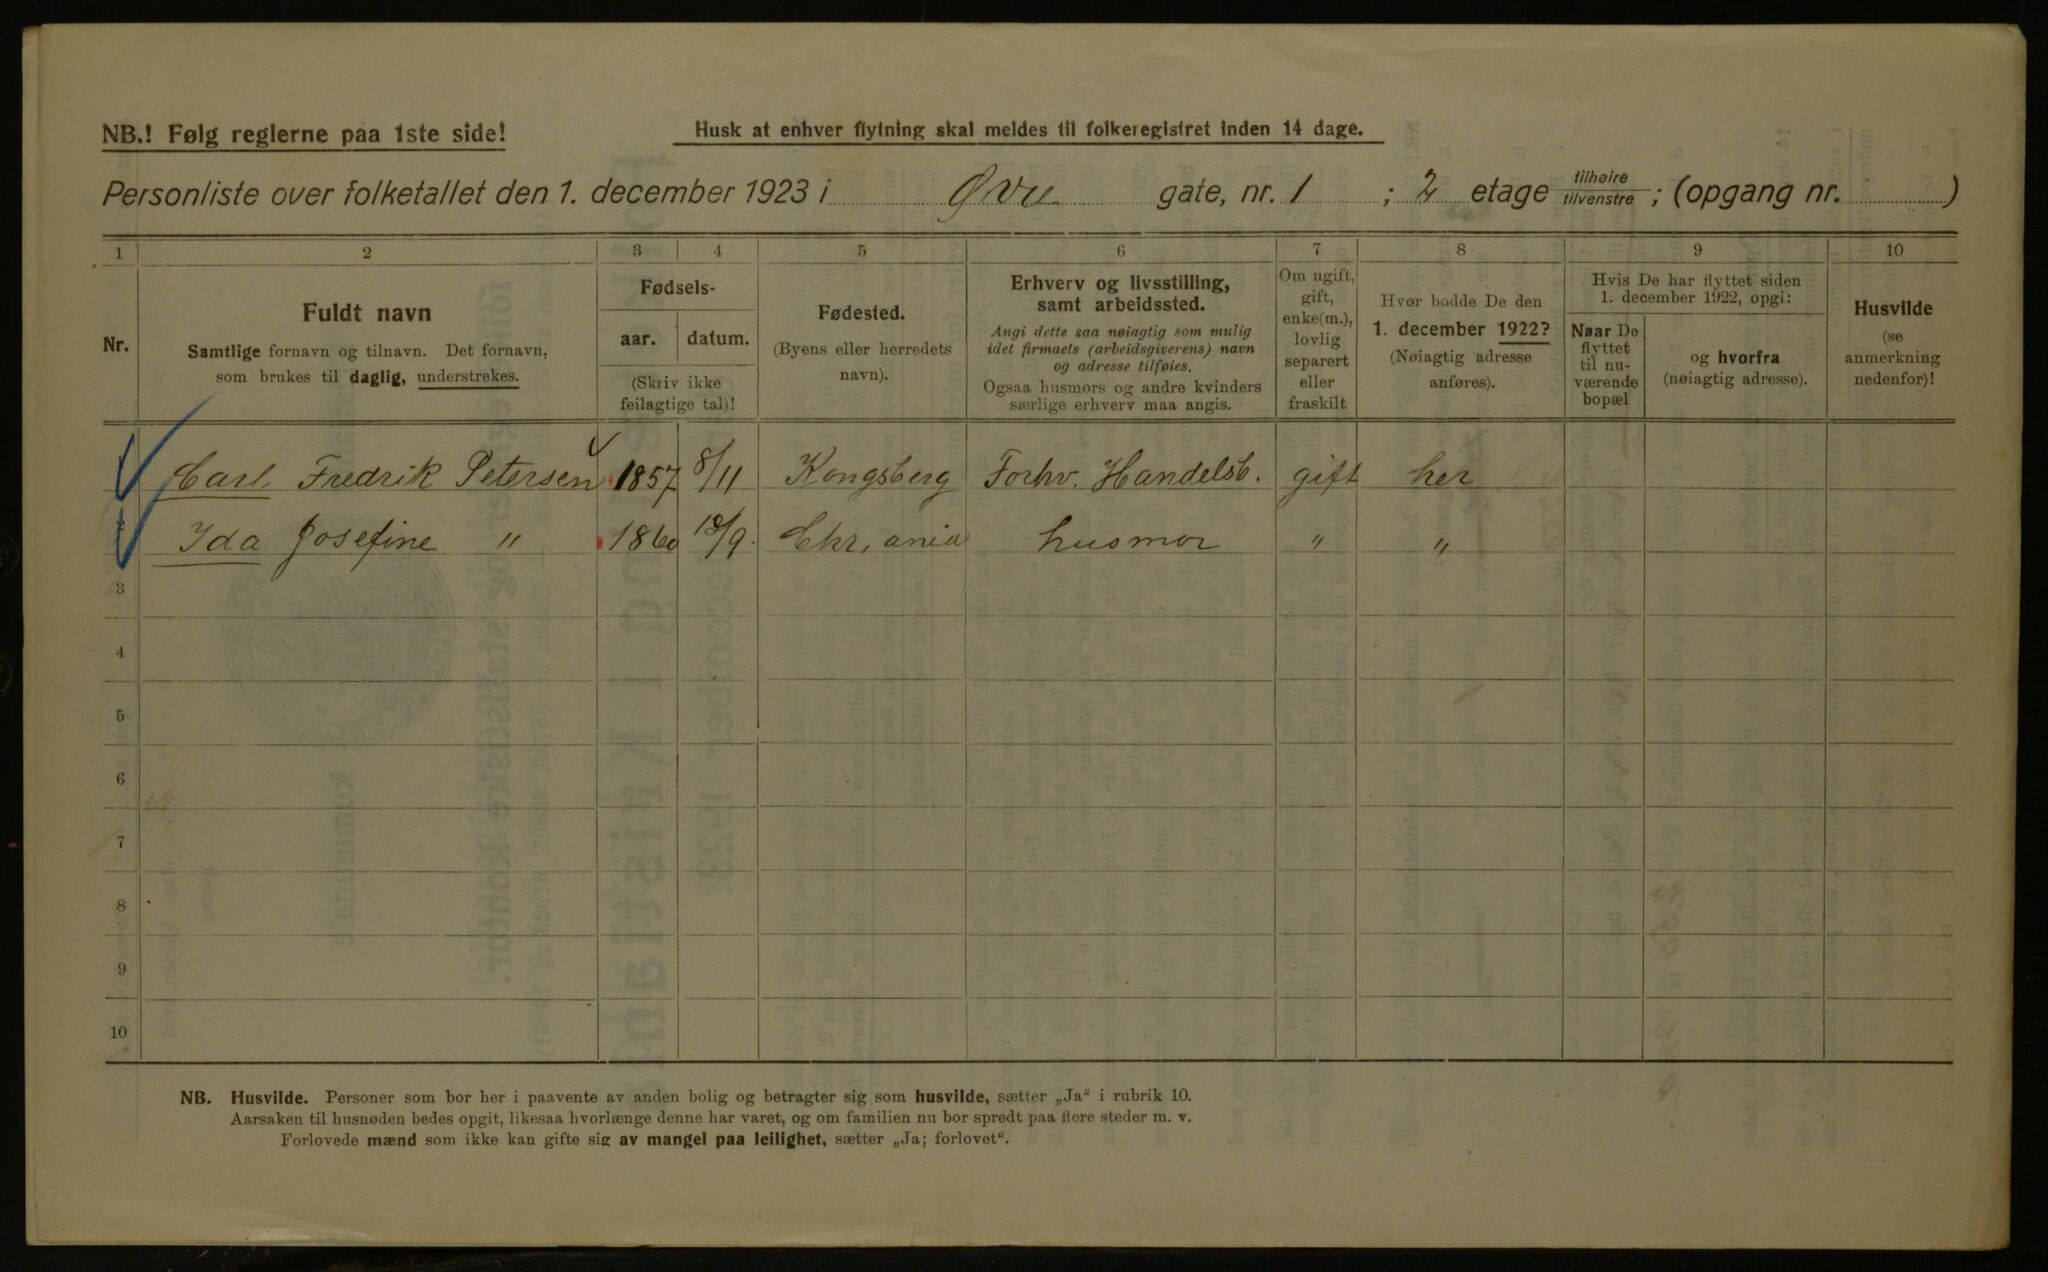 NB.! Følg reglerne paa 1ste side!
Husk at enhver flytning skal meldes til folkeregistret inden 14 dage.
Personliste over folketallet den 1. december 1923 i Øvre gate, nr. 1 ; 2 etage tilhøire/tilvenstre ; (opgang nr. )
1 2 3 4 5 6 7 8 9 10
Nr.
Fuldt navn
Samtlige fornavn og tilnavn. Det fornavn,
som brukes til daglig, understrekes.
Fødsels-
aar. datum.
(Skriv ikke
feilagtige tal)!
Fødested.
(Byens eller herredets
navn).
Erhverv og livsstilling,
samt arbeidssted.
Angi dette saa nøiagtig som mulig
idet firmaets (arbeidsgiverens) navn
og adresse tilføies.
Ogsaa husmors og andre kvinders
særlige erhverv maa angis.
Om ugift,
gift,
enke(m.),
lovlig
separert
eller
fraskilt
Hvor bodde De den
1. december 1922?
(Nøiagtig adresse
anføres).
Hvis De har flyttet siden
1. december 1922, opgi:
Naar De
flyttet
til nu-
værende
bopæl
og hvorfra
(nøiagtig adresse).
Husvilde
(se
anmerkning
nedenfor)!
Carl Fredrik Petersen 1857 8/11 Kongsberg Forhv. Handelsb. gift her
2 Ida Josefine " 1860 /9. Chr,ania husmor " "
3
4
5
6
7
8
9
10
NB. Husvilde. Personer som bor her i paavente av anden bolig og betragter sig som husvilde, sætter „Ja“ i rubrik 10.
Aarsaken til husnøden bedes opgit, likesaa hvorlænge denne har varet, og om familien nu bor spredt paa flere steder m. v.
Forlovede mænd som ikke kan gifte sig av mangel paa leilighet, sætter „Ja; forlovet“.